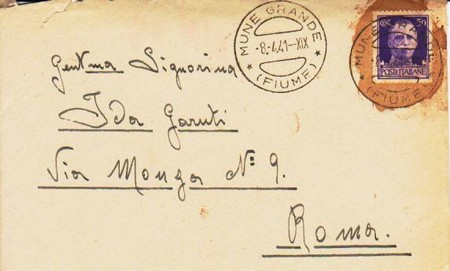 MUNE GRANDE
-8-7.41-XIX
(FIUME)
50
POSTE ITALIANE
MUNE GRANDE
(FIUME)
Gent.ma Signorina
Ida Garuti
Via Monza N° 9.
Roma.